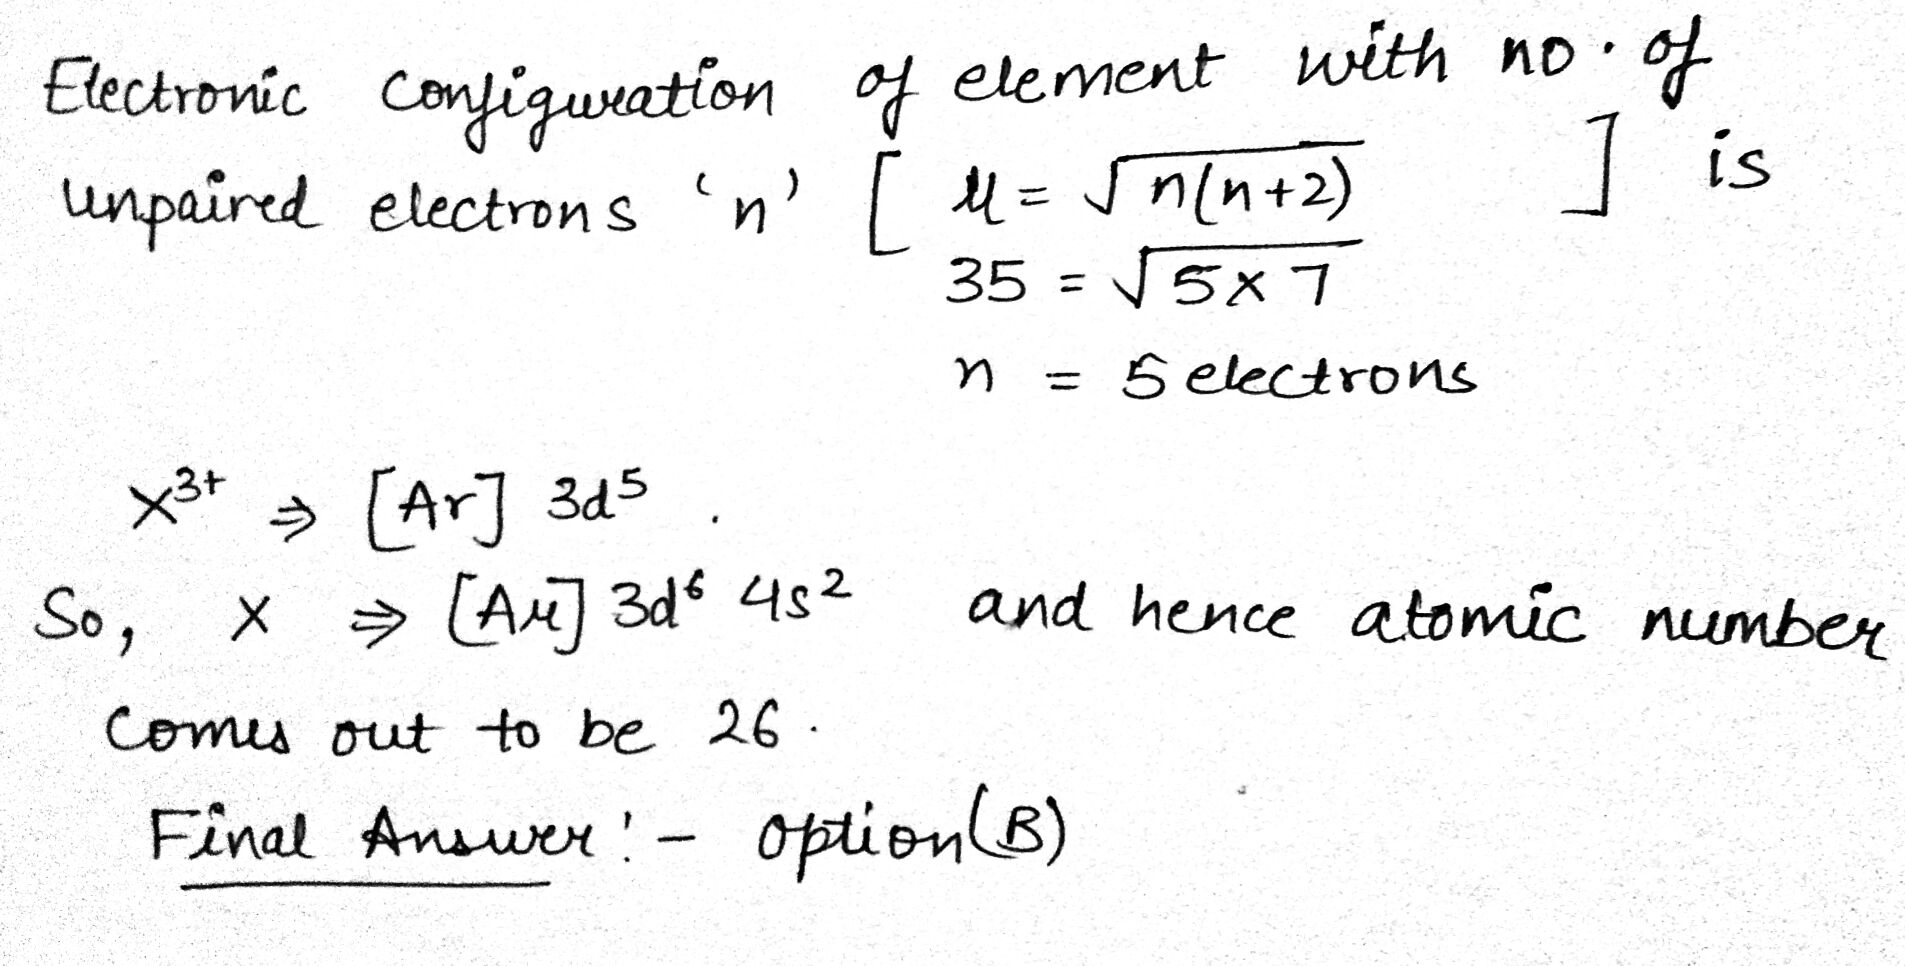 Electronic configuration of element with no. of
unpaired electrons 'n' [ μ = √n(n+2) ] is
35 = √5×7
n = 5 electrons
X³⁺ ⇒ [Ar] 3d⁵ .
So, X ⇒ [Ar] 3d⁶ 4s² and hence atomic number
comes out to be 26.
Final Answer :- option (B)